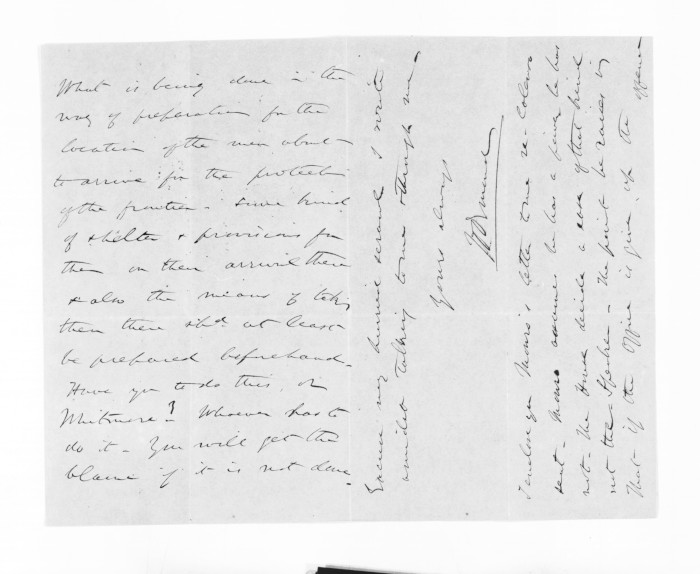 What is being done in the
way of preparation for the
location of the men about
to arrive for the protectn
of the frontier - Some kind
of shelter & provisions for
them on their arrival there
& also the means of takg
them there shd. at least
be prepared beforehand -
Have you to do this, or
Whitmore? Whoever has to
do it - You will get the
blame if it is not done -
Excuse my hurried scrawl I write
amidst talking to me &
Yours always
I enclose you Monro's letter to me re
sent - Monro assumes he has a power he has
not - the House decide a case of that kind
not the Speaker - The point be raised is
that if the Office is given up the